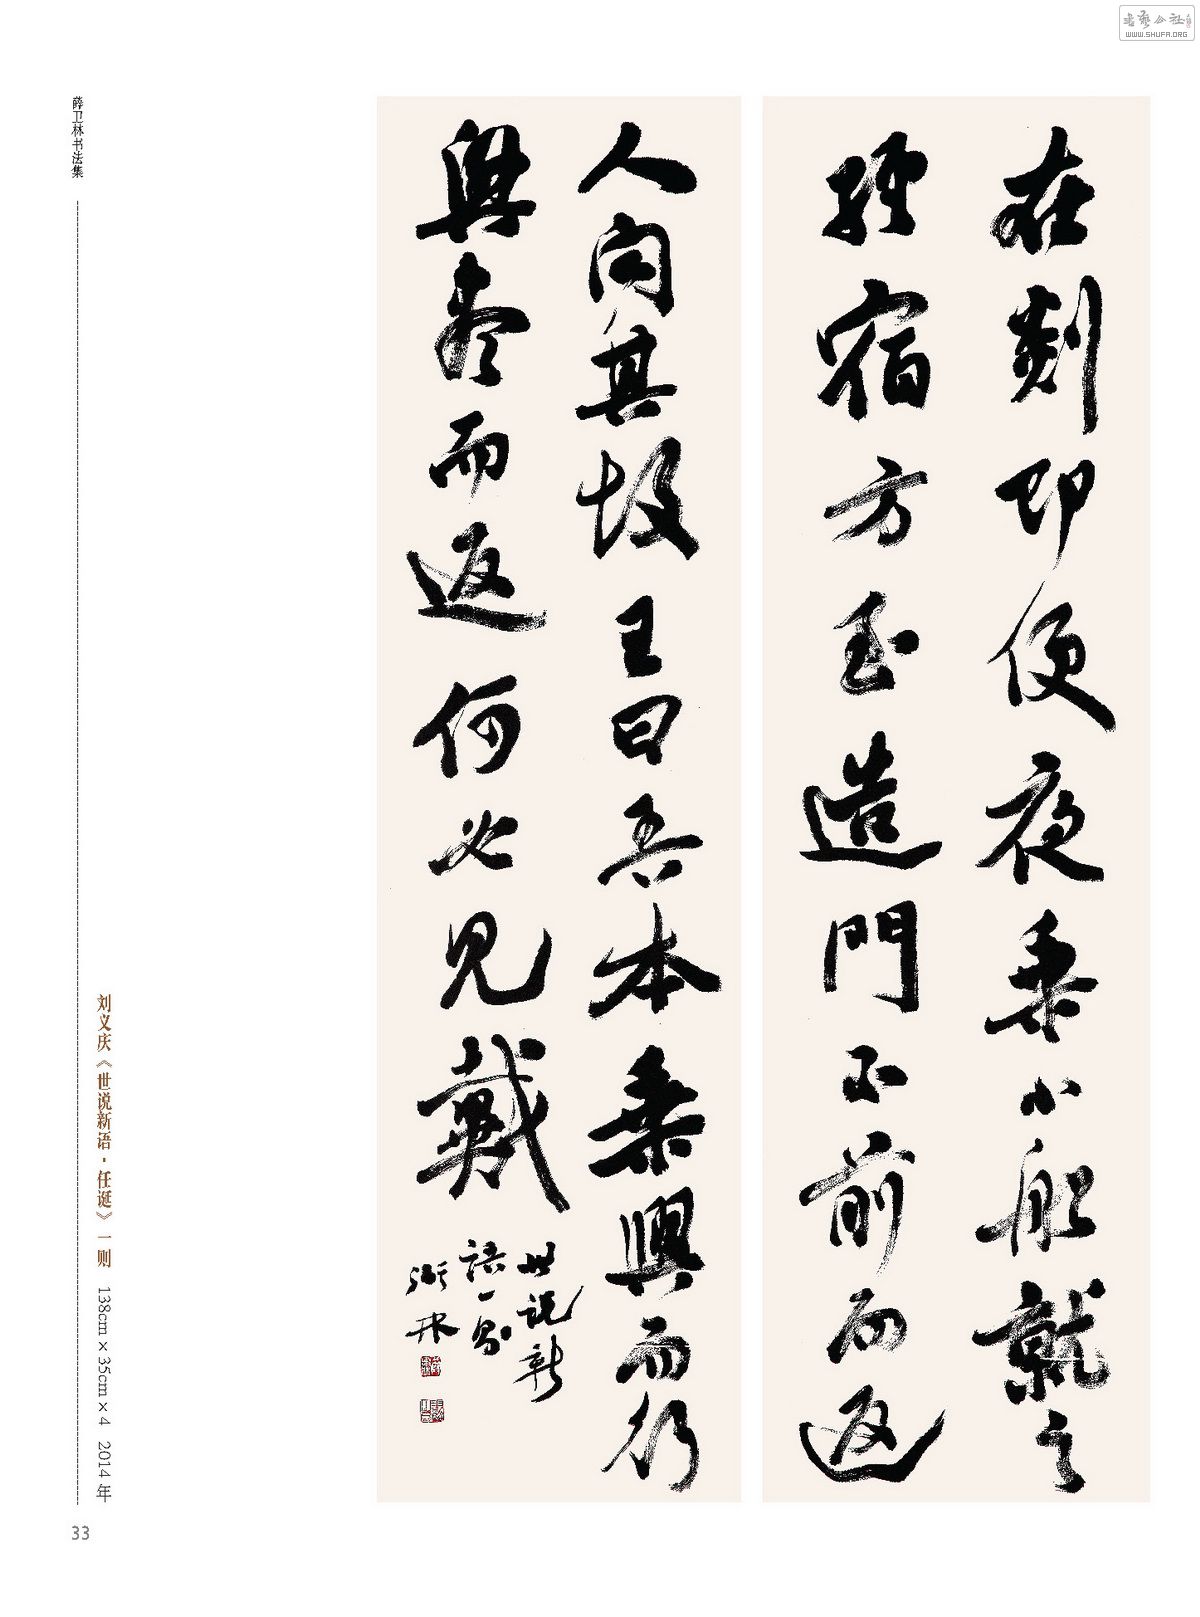 在剡即便夜乘小船就之
經宿方至造門不前而返
人問其故王曰吾本乘興而行
興盡而返何必見戴
世说新
語一則
衛林
薛卫林书法集
刘义庆《世说新语·任诞》一则 138cm×35cm×4 2014年
33
WWW.SHUFA.ORG